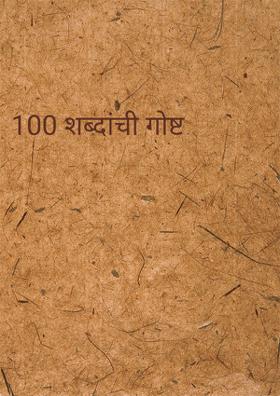 100 शब्दांची गोष्ट